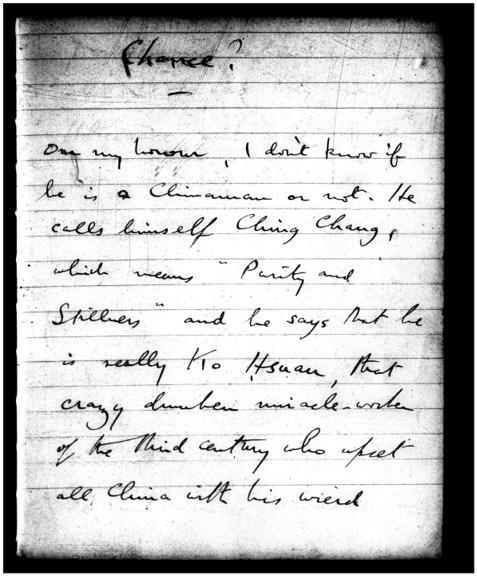 Chance?
On my honour, I don't know if
he is a Chinaman or not. He
calls himself Ching Chang,
which means "Purity and
Stillness" and he says that he
is really Ko Hsuan, that
crazy drunken miracle-worker
of the third century who upset
all China with his wierd